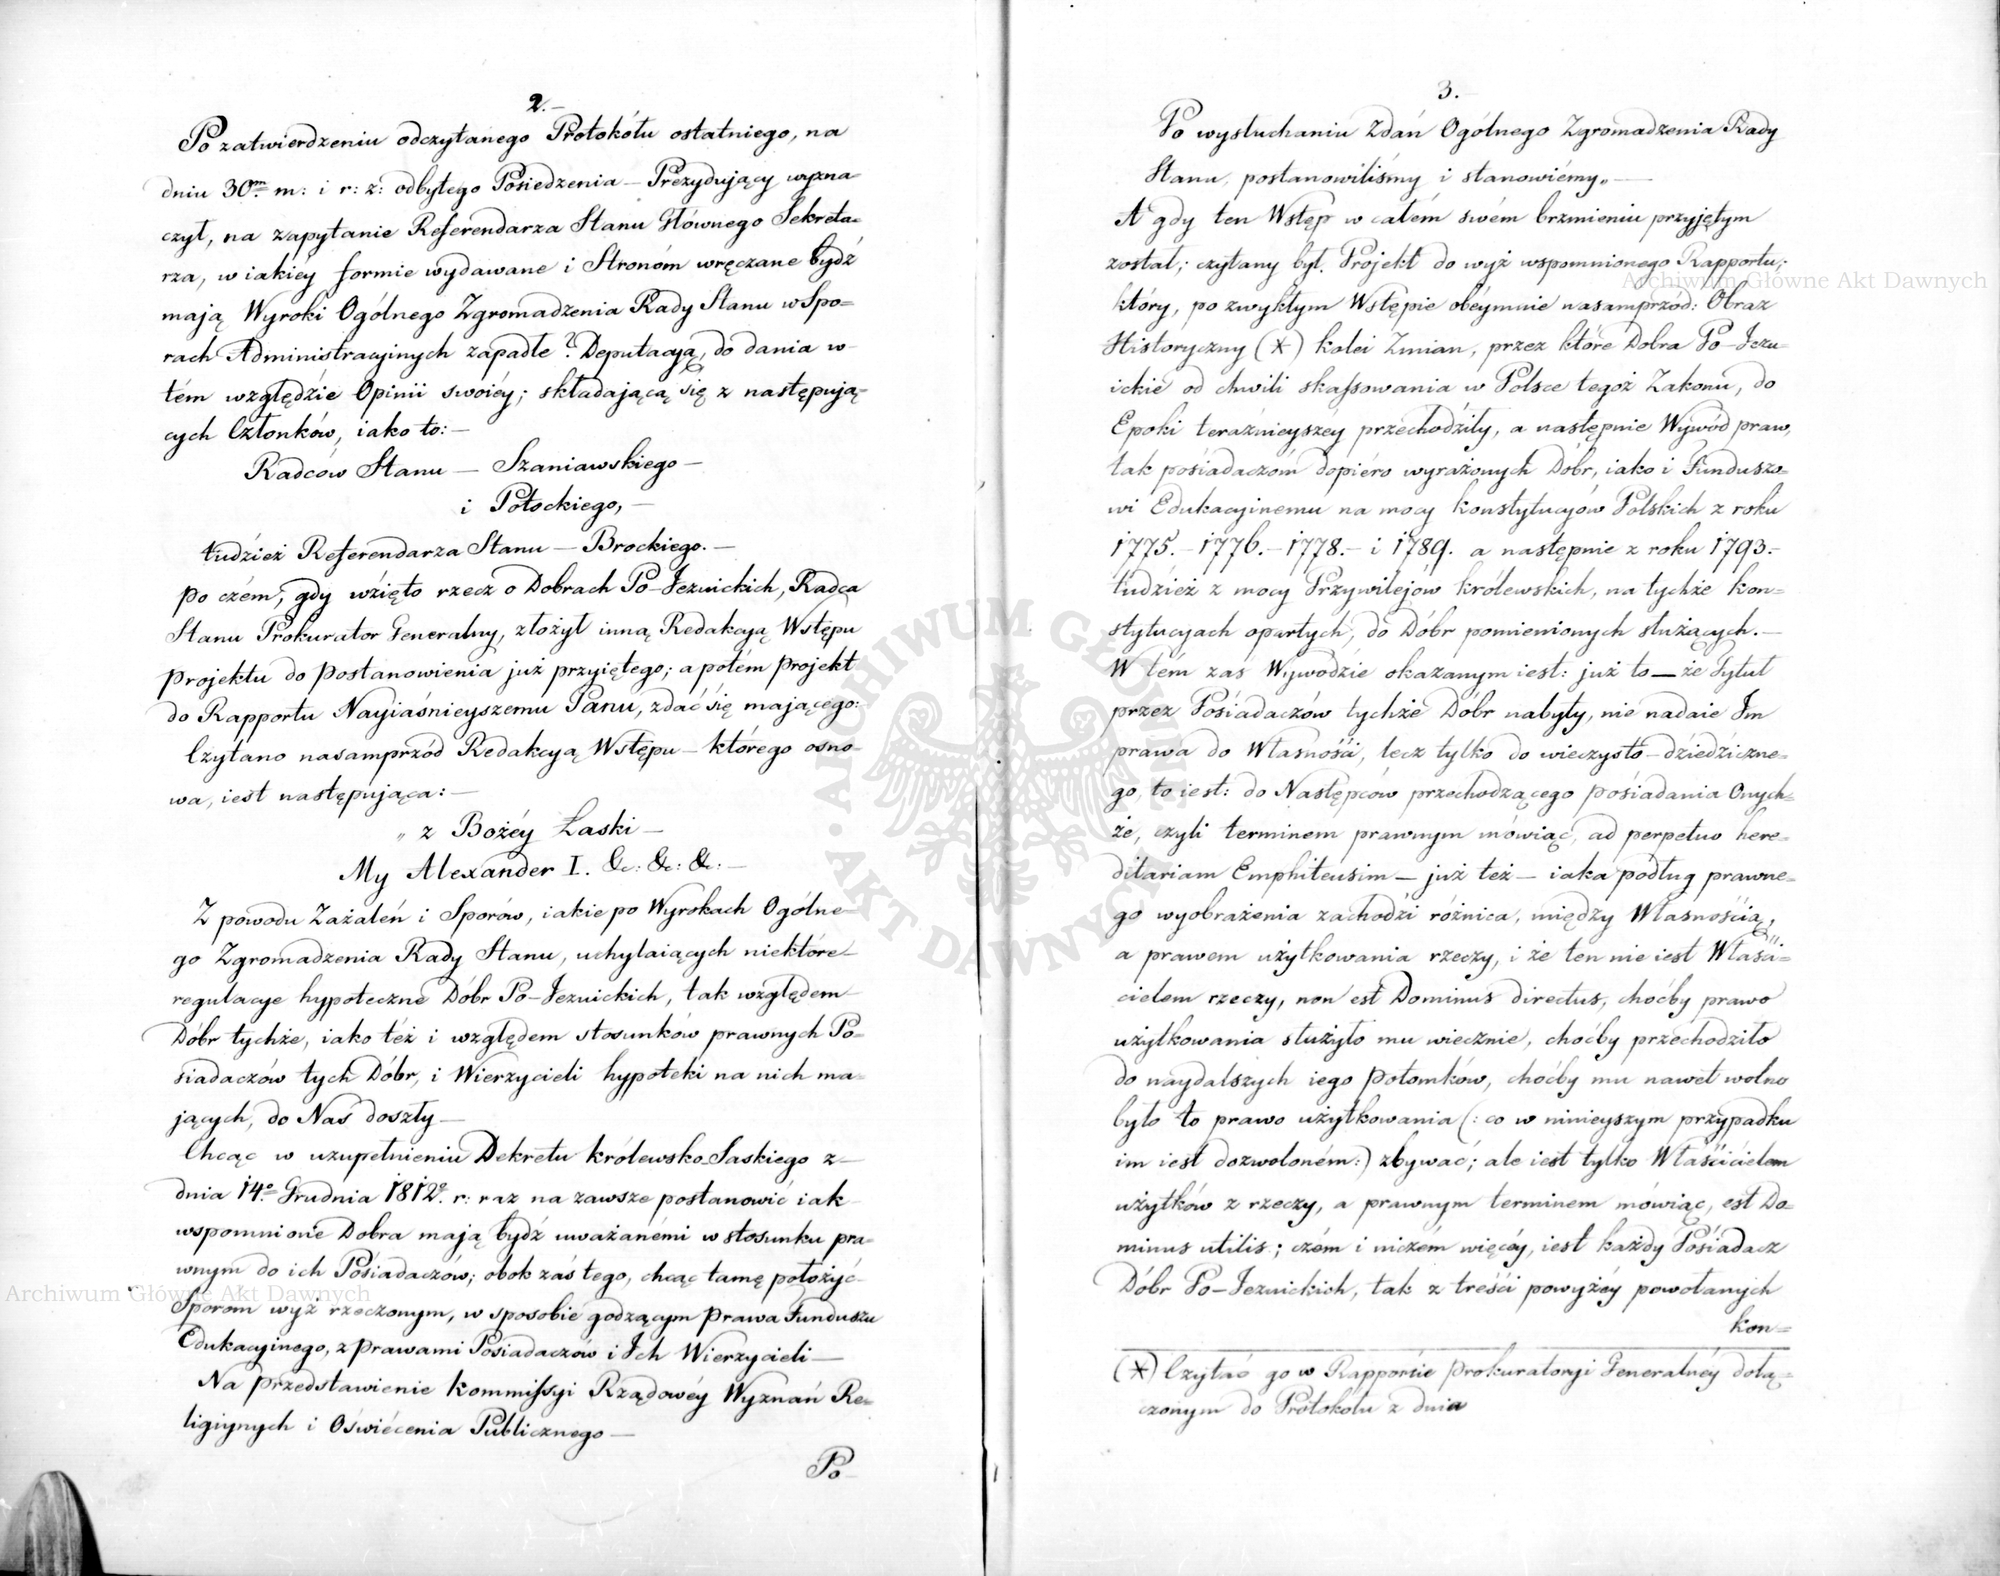 2.
Po zatwierdzeniu odczytanego Protokółu ostatniego, na
dniu 30m m: i r: z: odbytego Posiedzenia – Prezydujący wyzna
czył, na zapytanie Referendarza Stanu Głównego Sekreta-
rza, w iakiey formie wydawane i Stronóm wręczane bydź
mają Wyroki Ogólnego Zgromadzenia Rady Stanu w Spo-
rach Administracyinych zapadłe? Deputacyą, do dania w
tém względzie Opinii swoiéy; składającą się z następują-
cych Członków, iako to: –
Radców Stanu – Szaniawskiego –
i Potockiego, –
tudzież Referendarza Stanu – Brockiego. –
po czém, gdy wzięto rzecz o Dobrach Po-Jezuickich, Radca
Stanu Prokurator Generalny, złożył inną Redakcyą Wstępu
projektu do postanowienia już przyiętego; a potém projekt
do Rapportu Nayiaśnieyszemu Panu, zdać się mającego:
Czytano nasamprzód Redakcyą Wstępu – którego osno-
wa, iest następująca: –
„ z Bożéy Łaski –
My Alexander I. &c: &c: &c: –
Z powodu Zażaleń i Sporów, iakie po Wyrokach Ogólne-
go Zgromadzenia Rady Stanu, uchylaiących niektóre
regulacye hypoteczne Dóbr Po-Jezuickich, tak względem
Dóbr tychże, iako też i względem stosunków prawnych Po-
siadaczów tych Dóbr, i Wierzycieli hypoteki na nich ma-
jących, do Nas doszły –
Chcąc w uzupełnieniu Dekretu królewsko-Saskiego z
dnia 14o Grudnia 1812o r: raz na zawsze postanowić iak
wspomnione Dobra mają bydź uważanémi w stosunku pra-
wnym do ich Posiadaczów; obok zaś tego, chcąc tamę położyć
Sporom wyż rzeczonym, w sposobie godzącym prawa Funduszu
Edukacyinego, z prawami Posiadaczów i Ich Wierzycieli –
Na przedstawienie kommissyi Rządowéy Wyznań Re-
ligiynych i Oświécenia Publicznego –
Po
3.
Po wysłuchaniu Zdań Ogólnego Zgromadzenia Rady
Stanu, postanowiliśmy i stanowiémy„ –
A gdy ten Wstęp w całém swém brzmieniu przyjętym
został; czytany był Projekt do wyż wspomnionego Rapportu;
który, po zwykłym Wstępie obéymuie nasamprzód: Obraz
Historyczny (*) kolei Zmian, przez które Dobra Po-Jezu-
ickie od chwili skassowania w Polsce tegoż Zakonu, do
Epoki teraźnieyszéy przechodziły, a następnie Wywód praw,
tak posiadaczóm dopiéro wyrażonych Dóbr, iako i Funduszo-
wi Edukacyinemu na mocy konstytucyów Polskich z roku
1775. – 1776. – 1778. – i 1789. a następnie z roku 1793. –
tudzież z mocy Przywilejów królewskich, na tychże kon-
stytucyach opartych, do Dóbr pomienionych służących. –
W tém zaś Wywodzie okazanym iest: już to – że Tytuł
przez Posiadaczów tychże Dóbr nabyty, nie nadaie Im
prawa do Własności, lecz tylko do wieczysto-dziedziczne-
go, to iest: do Następców przechodzącego posiadania Onych-
że, czyli terminem prawnym mówiąc, ad perpetuo here-
ditariam Emphiteusim – już też – iaka podług prawne-
go wyobrażenia zachodzi różnica, między Własnością,
a prawem użytkowania rzeczy, i że ten nie iest Właści-
cielem rzeczy, non est Dominus directus, choćby prawo
użytkowania służyło mu wiecznie, choćby przechodziło
do naydalszych iego potomków, choćby mu nawet wolno
było to prawo użytkowania (: co w ninieyszym przypadku
im iest dozwoloném:) zbywać; ale iest tylko Właścicielem
użytków z rzeczy, a prawnym terminem mówiąc, est Do-
minus utilis; czém i niczém więcéy, iest każdy Posiadacz
Dóbr Po-Jezuickich, tak z treści powyżéy powołanych
kon-
(*) Czytać go w Rapporcie Prokuratoryi Generalnéy dołą-
czonym do Protokółu z dnia
Archiwum Główne Akt Dawnych
Archiwum Główne Akt Dawnych
ARCHIWUM GŁÓWNE • AKT DAWNYCH •